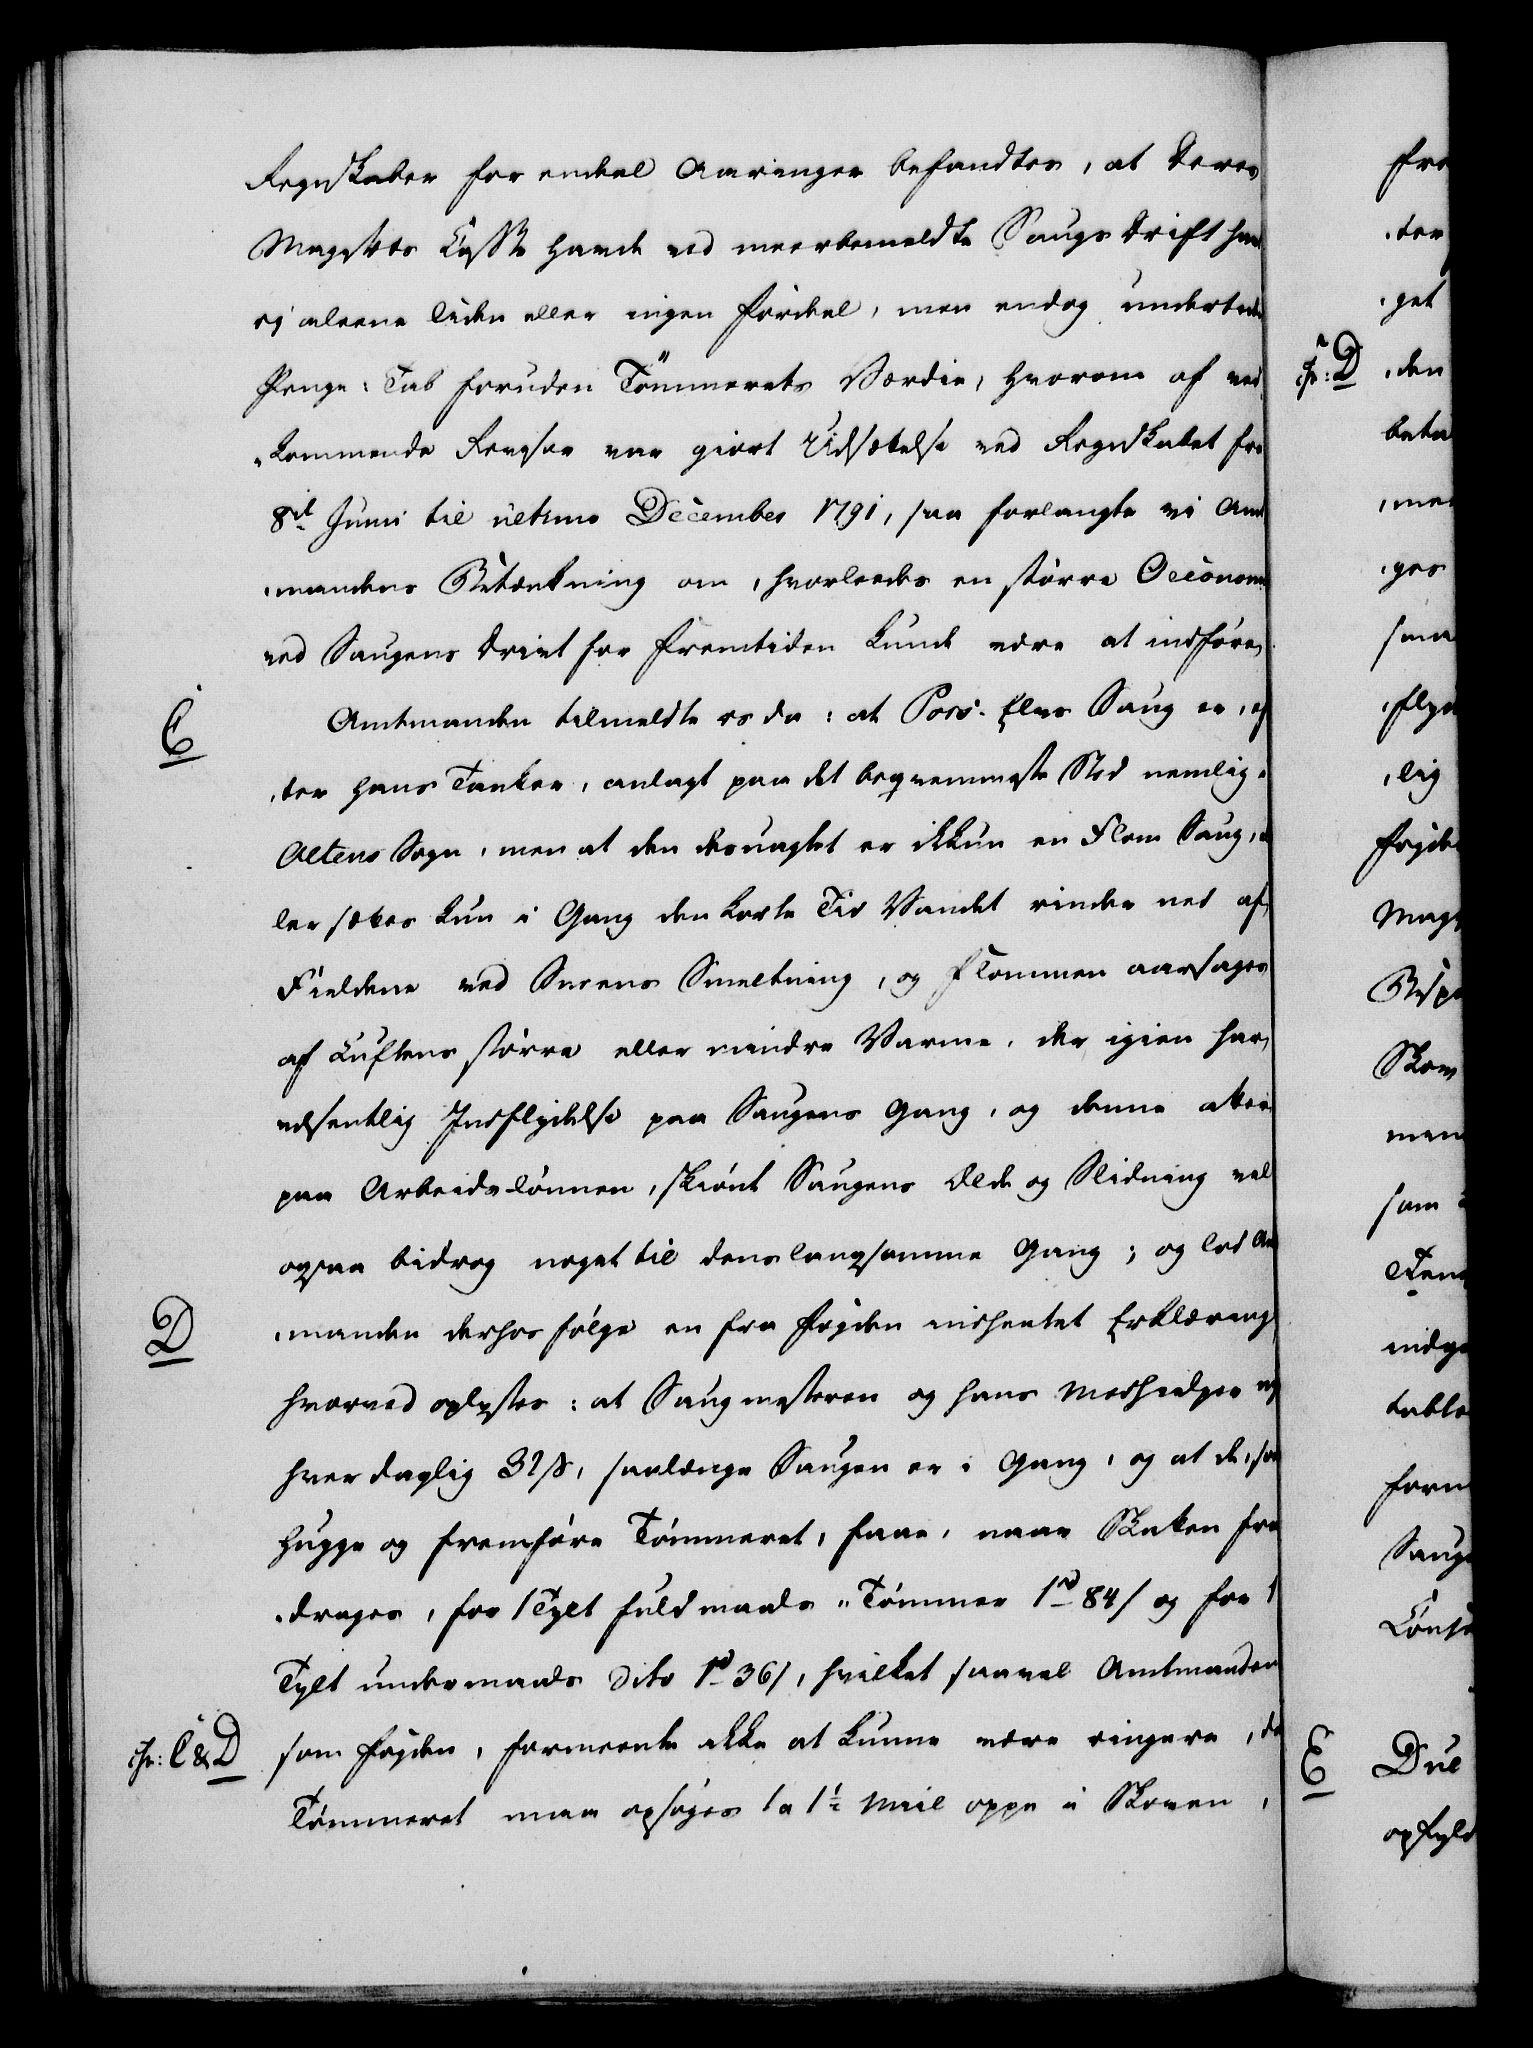 Regnskaber for endeel Aaringer befandtes, at Deres
Majestets Casse havde ved meerbemeldte Saugs Drift hav
ej aleene liden eller ingen Fordeel, men endog undertiden
Penge-Tab foruden Tømmerets Værdie, hvorom af ved
kommende Revisor var giort Udsættelse ved Regnskabet fra
8de Junii til ultimo December 1791, saa forlangte vi Amt
mandens Betænkning om, hvorleedes en større Oeconomi
ved Saugens Drivt for Fremtiden kunde være at indføre.
C
Amtmanden tilmeldte os da: at Pors. Elvs Saug er, ef
ter hans Tanker, anlagt paa det beqvemmeste Sted nemlig i
Altens Sogn, men at den desuagtet er ikkun en Flom Saug, e
ler sættes kun i Gang den korte Tid Vandet rinder ned af
Fieldene ved Sneens Smeltning, og Flommen aarsages
af Luftens større eller mindre Varme, der igien har
væsentlig Indflydelse paa Saugens Gang, og denne atter
paa Arbeidslønnen, skiønt Saugens Ælde og Slidning vel
ogsaa bidrog noget til dens langsomme Gang; og lod Amt
D
manden derhos følge en fra Fogden indhentet Erklæring
hvorved oplystes: at Saugmesteren og hans Medhielper nyd
hver daglig 32 s, saalænge Saugen er i Gang, og at de, som
hugge og fremføre Tømmeret, faae, naar Skatten fra
drages, for 1 Tylt fuldmaads Tømmer 1 rd 84 s og for 1
Tylt undermaads dito 1 rd 36 s, hvilket saavel Amtmanden
cfr: C & D
som Fogden, formeente ikke at kunne være ringere, da
Tømmeret maa opsøges 1 a 1½ Miil oppe i Skoven,
cfr: D
E
fra
ter
get
den
beta
ges
lig
Fogde
som
indge
Saug
Due
opfyld